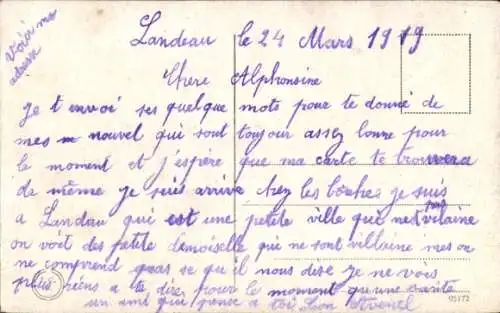 Voici mo
adresse
Landeau le 24 Mars 1919
Chere Alphonsine
Je t envoi ses quelque mots pour te donné de
mes nouvel qui sont toujour assez bonne pour
le moment et j'espère que ma carte te trouvera
de même je suis arrive chez les boches je suis
a Landau qui est une petite ville qui nest pas vilaine
on voit des petite demoiselle qui ne sont villaine mes on
ne comprend quas se qu il nous dise je ne vois
plus riens a te dire pour le moment
un ami qui pense a toi Leon
95172